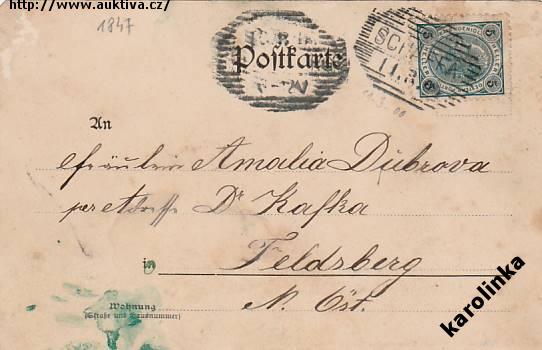 http://www.auktiva.cz/
1847
Postkarte
5 5
5 5
11.3
11.3.00
An
Fräulein Amalia Dubrova
per Adresse Dr Kafka
in Feldsberg
N. Öst.
Wohnung
(Straße und Hausnummer)
karolinka